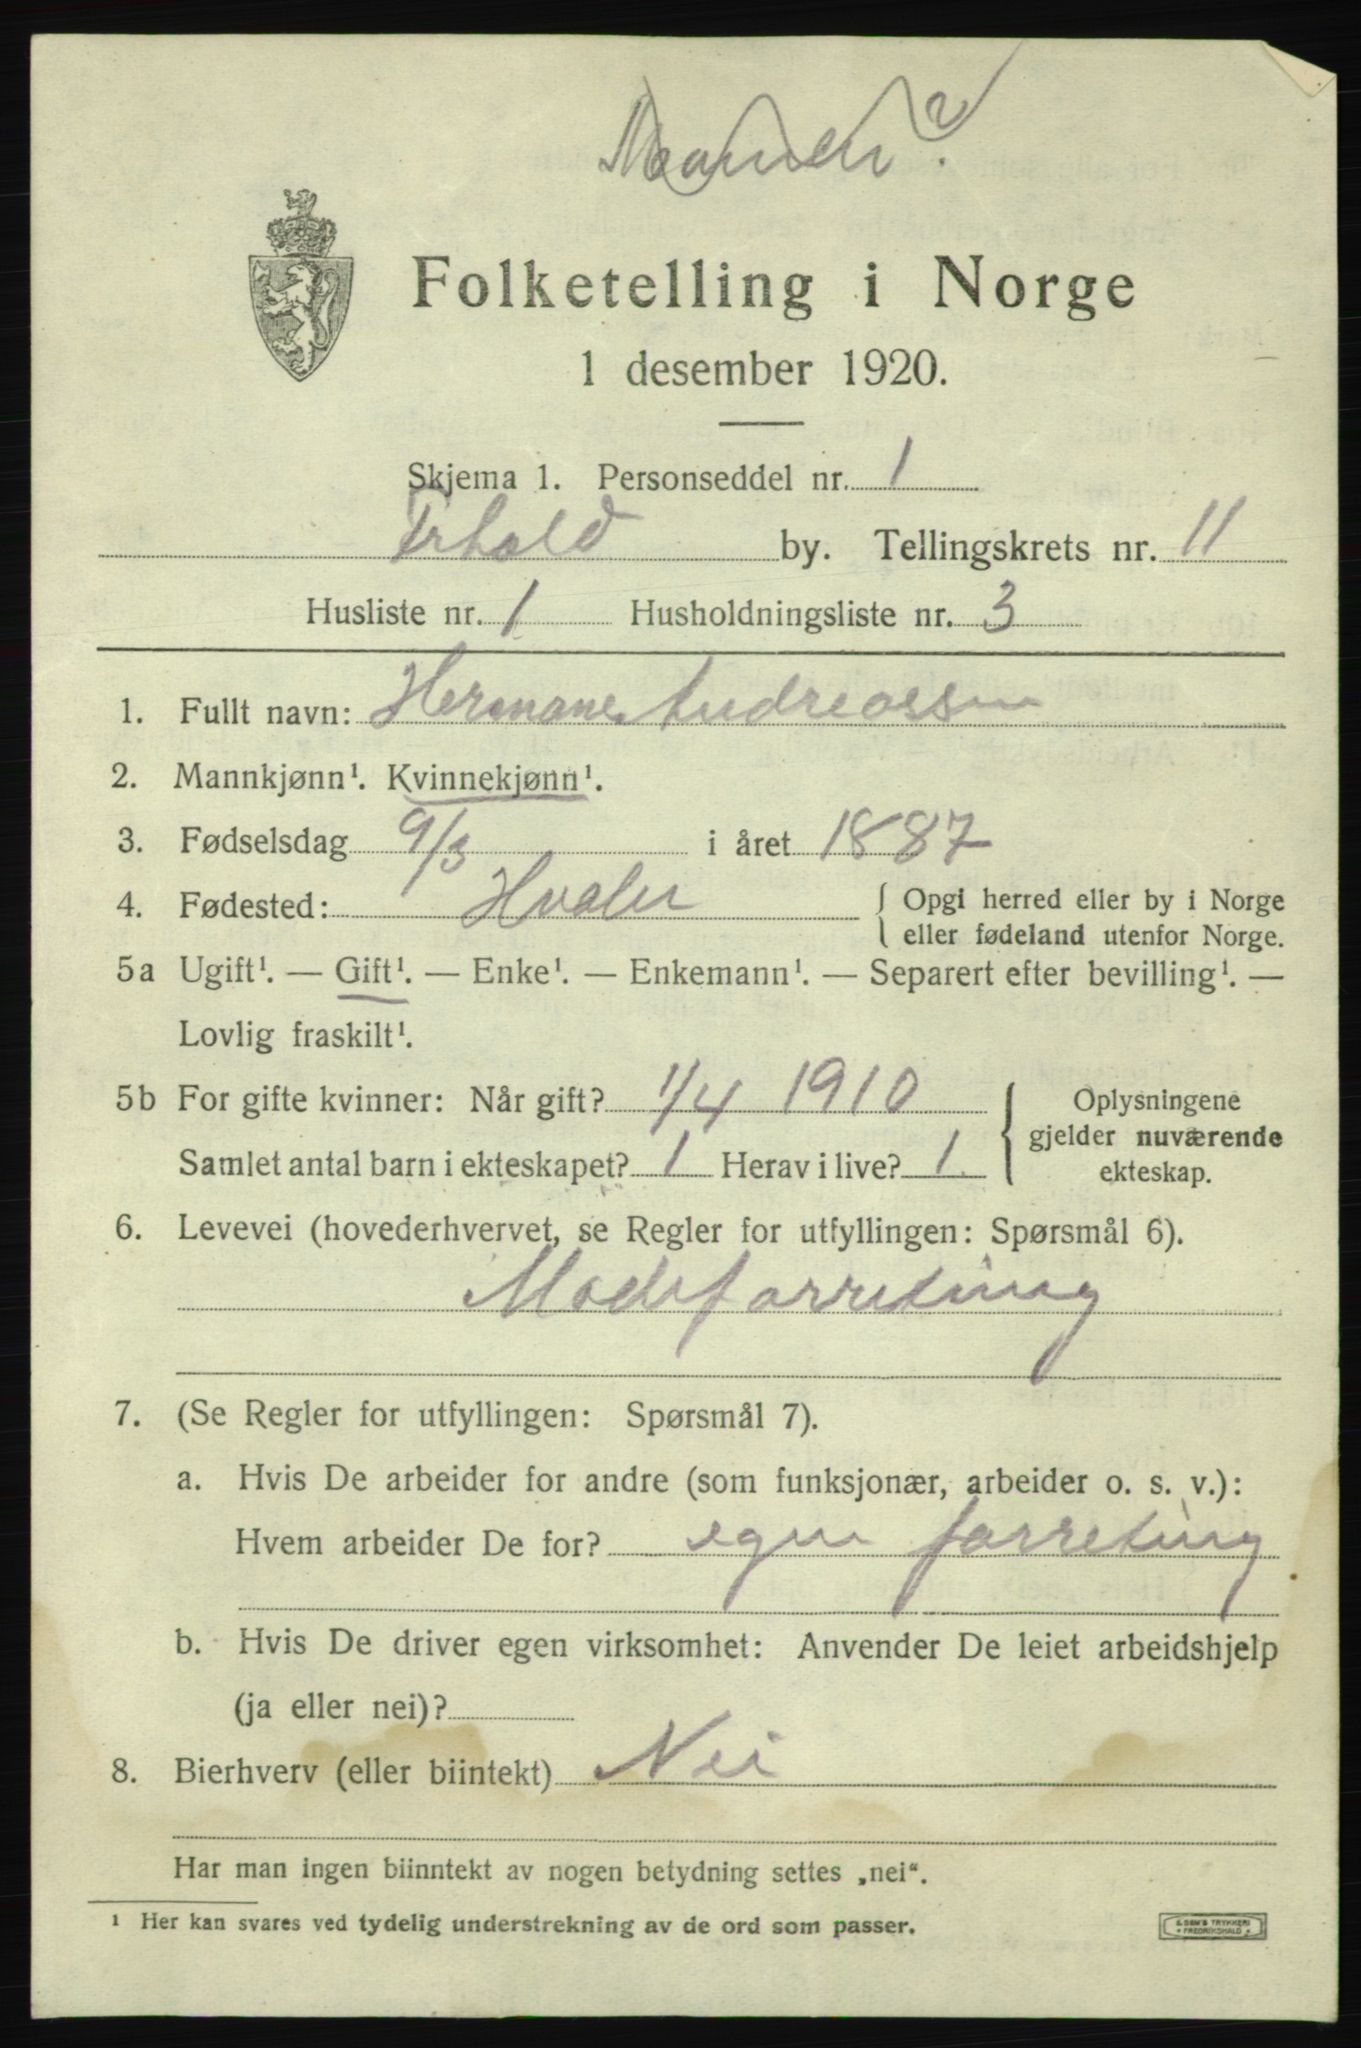 Manden?
Folketelling i Norge
1 desember 1920.
Skjema 1. Personseddel nr. 1
Frhald by. Tellingskrets nr. 11
Husliste nr. 1 Husholdningsliste nr. 3
1. Fullt navn: Hermane Andreassen
2. Mannkjønn¹. Kvinnekjønn¹.
3. Fødselsdag 9/3 i året 1887
4. Fødested: Hvaler { Opgi herred eller by i Norge
eller fødeland utenfor Norge.
5a Ugift¹. — Gift¹. — Enke¹. — Enkemann¹. — Separert efter bevilling¹. —
Lovlig fraskilt¹.
5b For gifte kvinner: Når gift? 1/4 1910 { Oplysningene
gjelder nuværende
Samlet antal barn i ekteskapet? 1 Herav i live? 1. ekteskap.
6. Levevei (hovederhvervet, se Regler for utfyllingen: Spørsmål 6).
Modeforretning
7. (Se Regler for utfyllingen: Spørsmål 7).
a. Hvis De arbeider for andre (som funksjonær, arbeider o. s. v.):
Hvem arbeider De for? egen forretning
b. Hvis De driver egen virksomhet: Anvender De leiet arbeidshjelp
(ja eller nei)?
8. Bierhverv (eller biintekt) Nei
Har man ingen biinntekt av nogen betydning settes „nei“.
¹ Her kan svares ved tydelig understrekning av de ord som passer.
FREDRIKSHALD